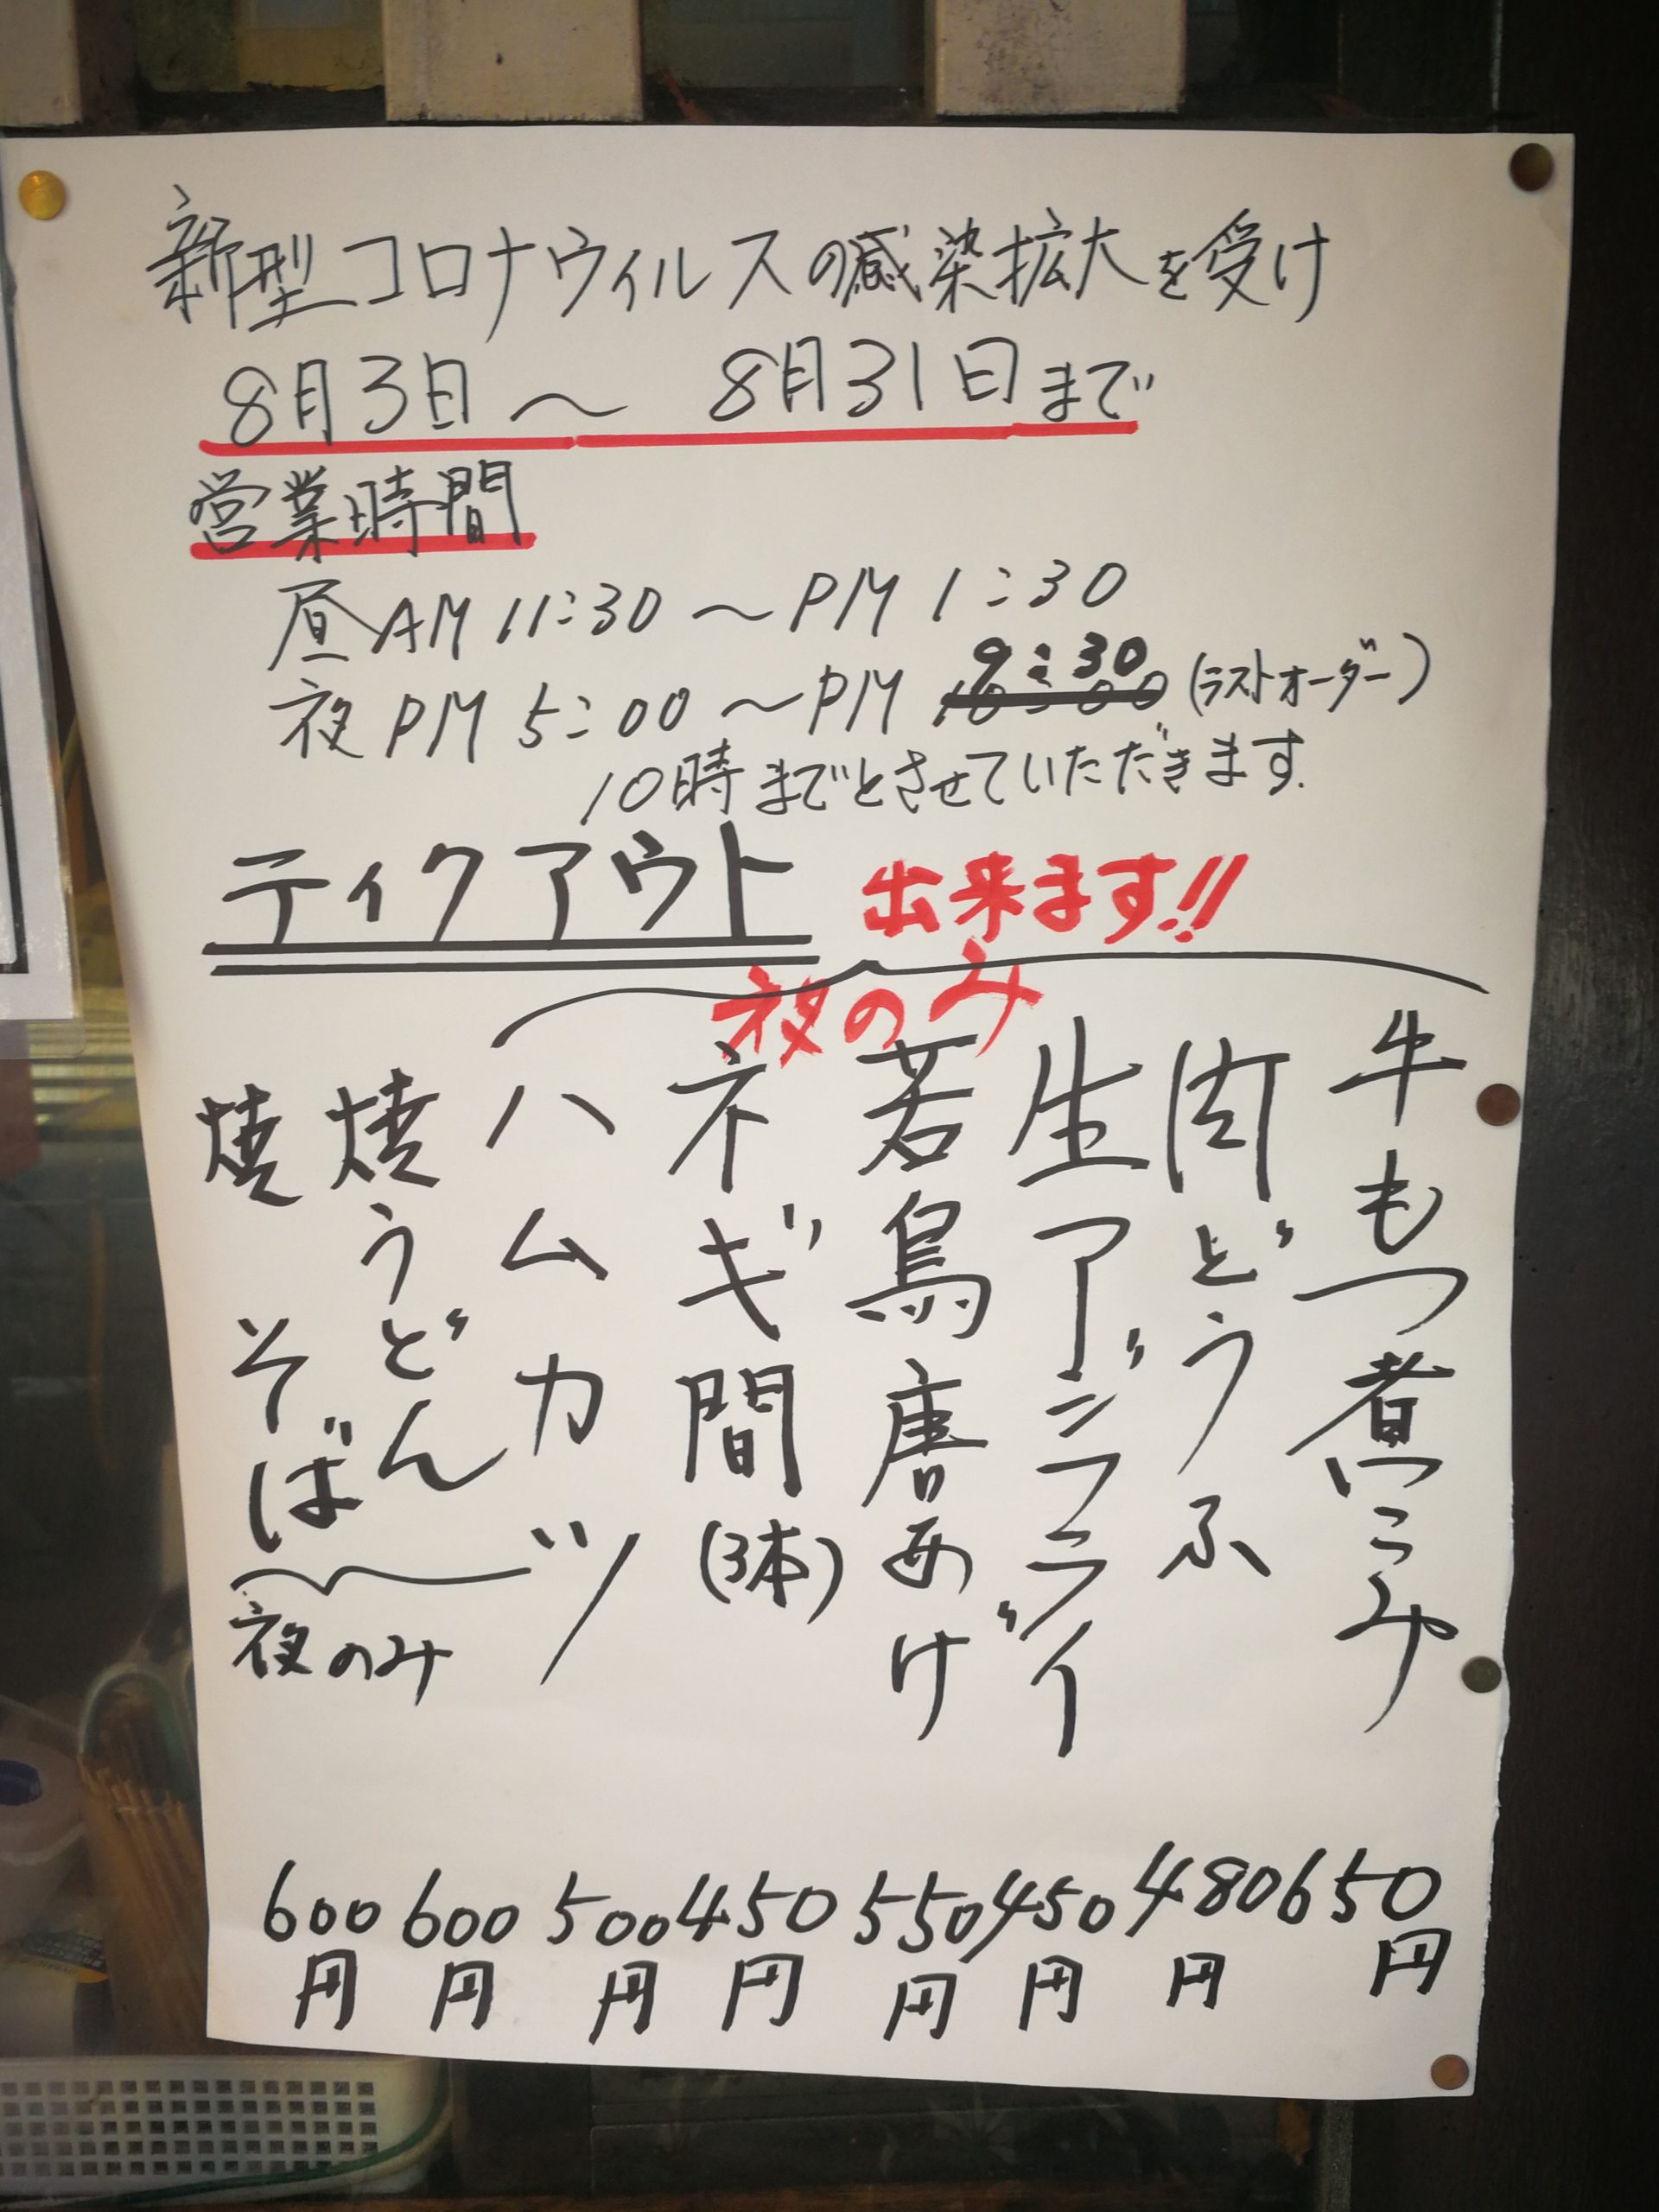 新型コロナウィルスの感染拡大を受け
8月3日～8月31日まで
営業時間
昼AM 11:30～PM 1:30
夜PM 5:00～PM 10:00 9:30(ラストオーダー)
10時までとさせていただきます.
テイクアウト 出来ます!!
夜のみ
牛もつ煮こみ 650円
肉どうふ 480円
生アジフライ 450円
若鳥唐あげ 550円
ネギ間(3本) 450円
ハムカツ 500円
焼うどん 600円
焼そば 600円
夜のみ